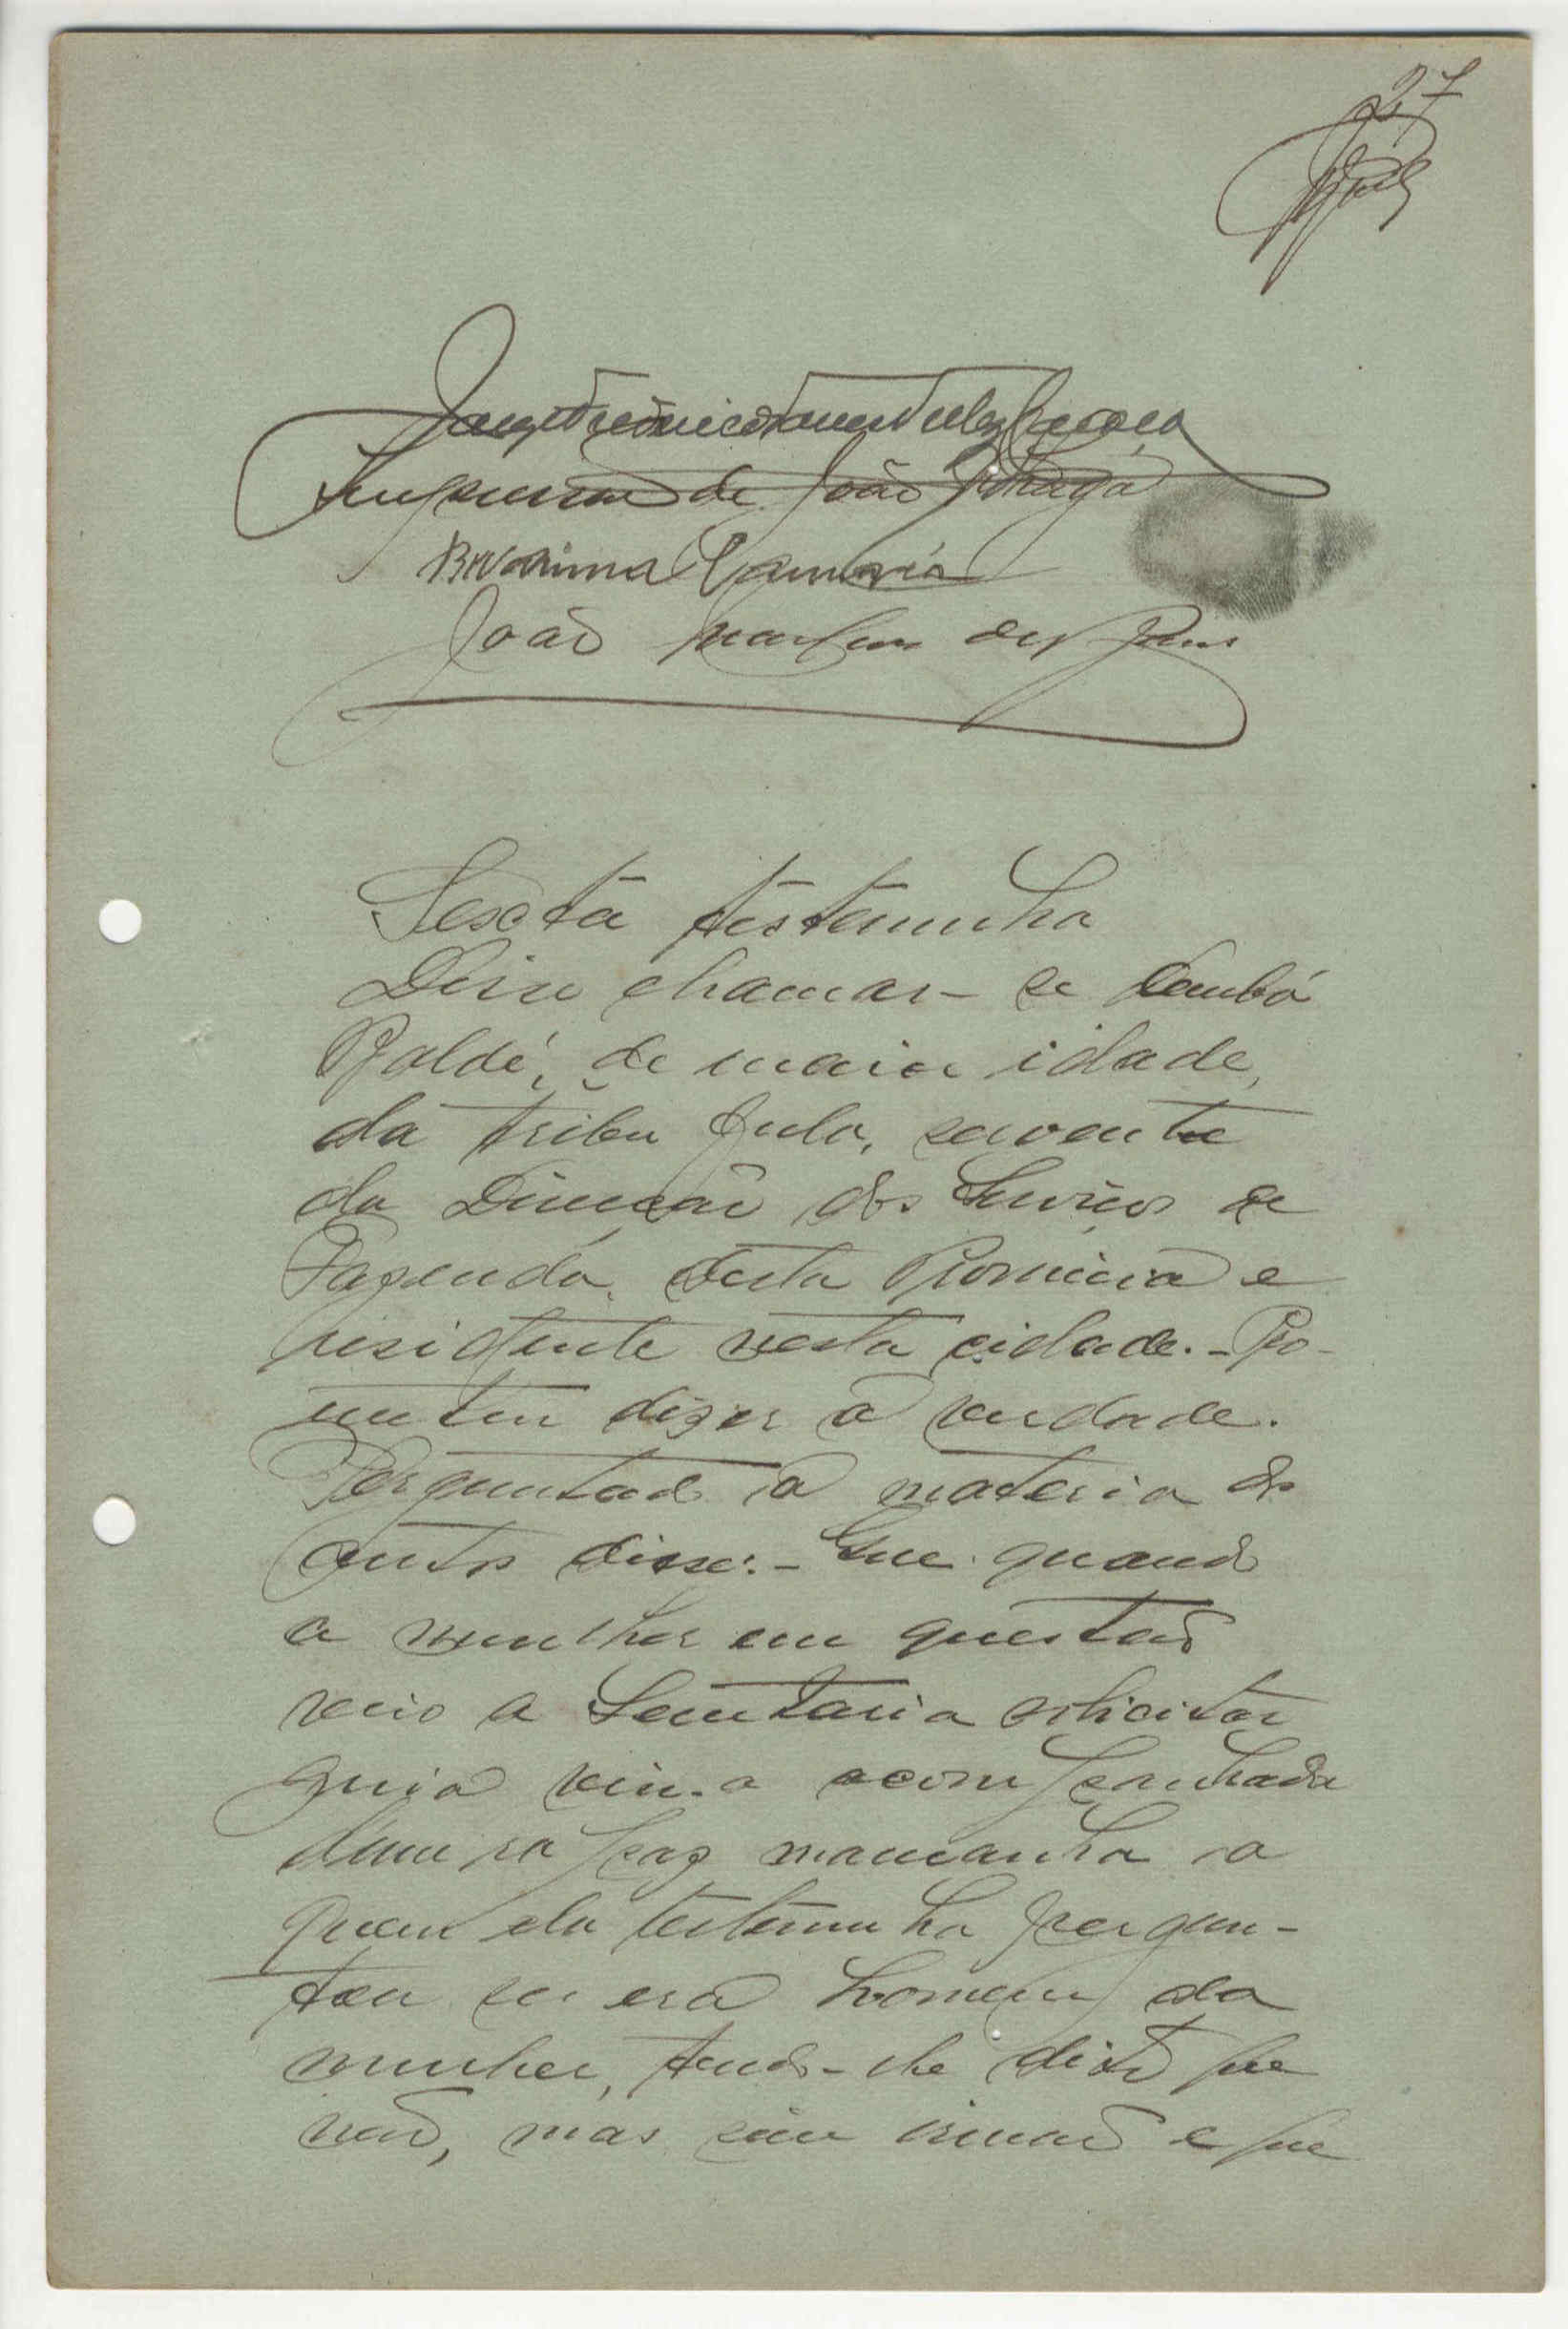 27
de João Braga
João Martins
Sexta testemunha
Disse chamar-se Sambá
Baldé, de maior idade,
da tribu fula, servente
da Direcção dos Serviços de
Fazenda, desta Provincia e
residente nesta cidade. - Pro-
meteu dizer a verdade.
Perguntado á materia dos
autos disse: - Que quando
a mulher em questão
veio a Secretaria solicitar
guia vinha acompanhada
dum rapaz mancanha a
quem ela testemunha pergun-
tou se era homem da
mulher, tendo-lhe dito que
não, mas sim irmão e que